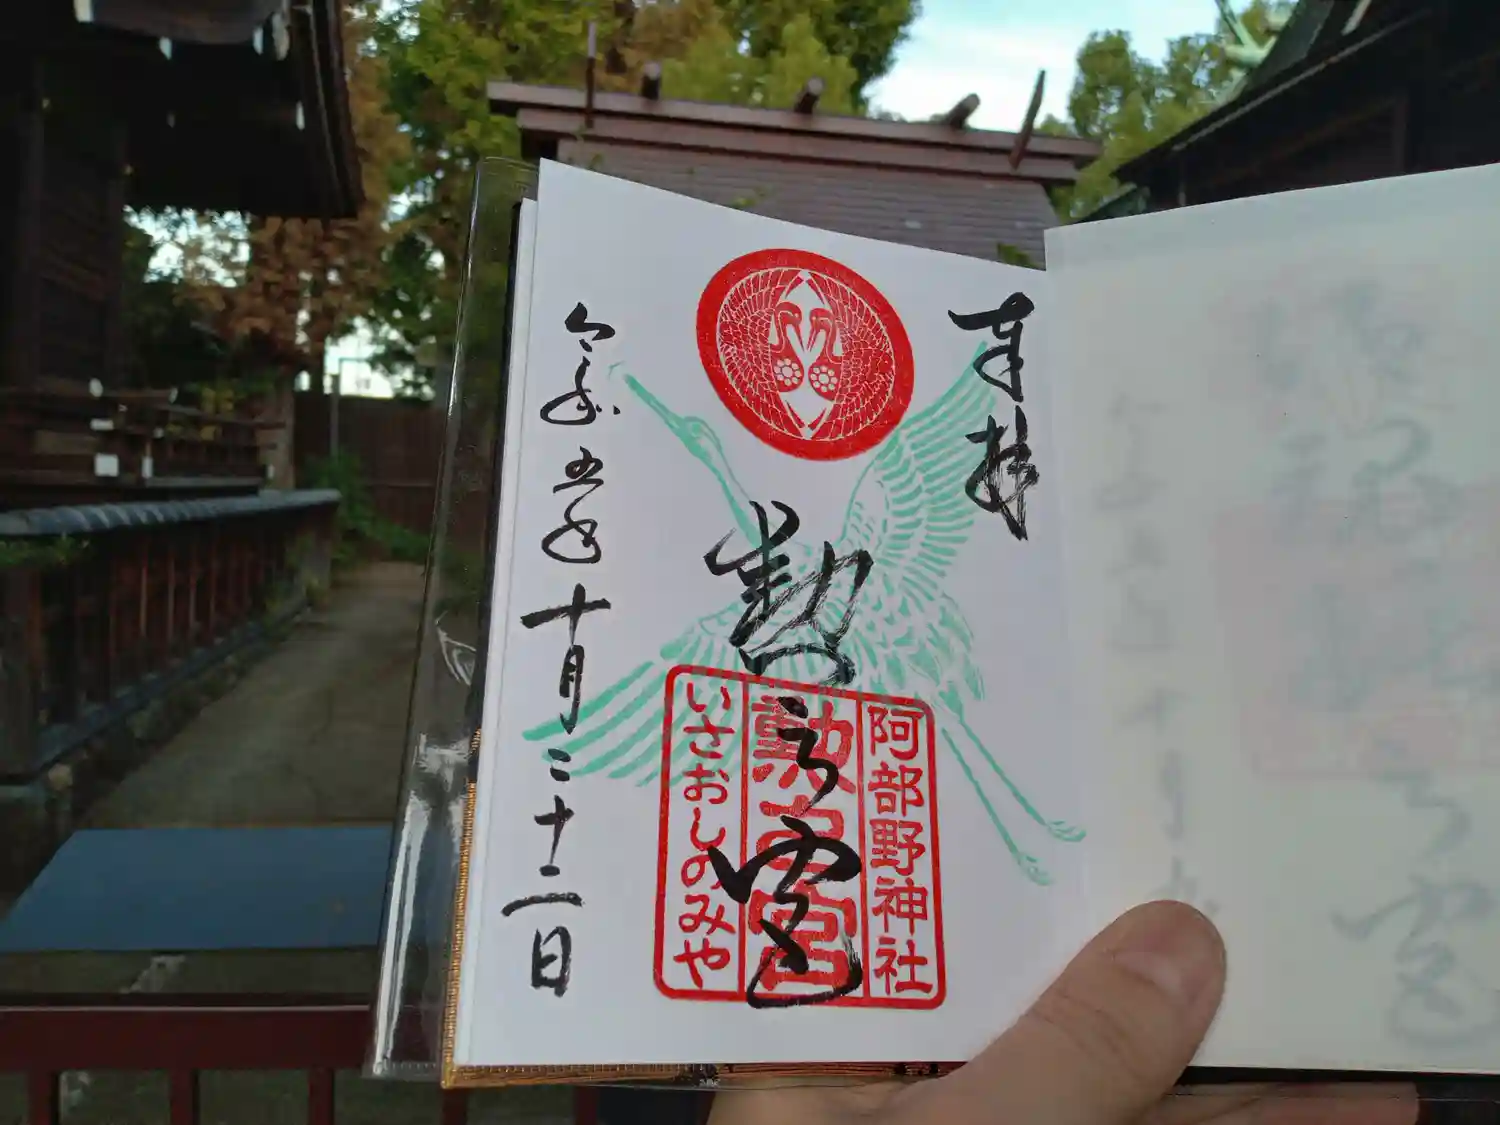 奉拝
勲之宮
阿部野神社
勲之宮
いさおしのみや
令和五年十月二十二日